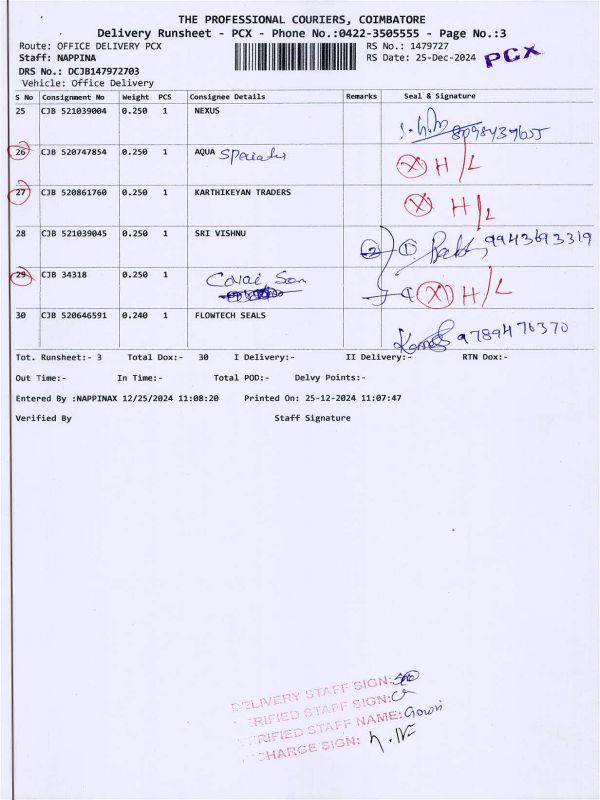 THE PROFESSIONAL COURIERS, COIMBATORE
Delivery Runsheet - PCX - Phone No.:0422-3505555 - Page No.:3
Route: OFFICE DELIVERY PCX RS No.: 1479727
Staff: NAPPINA RS Date: 25-Dec-2024 PCX
DRS No.: DCJB147972703
Vehicle: Office Delivery
S No Consignment No Weight PCS Consignee Details Remarks Seal & Signature
25 CJB 521039004 0.250 1 NEXUS
26 CJB 520747854 0.250 1 AQUA H/L
27 CJB 520861760 0.250 1 KARTHIKEYAN TRADERS H/L
28 CJB 521039045 0.250 1 SRI VISHNU 2 1 9943693319
29 CJB 34318 0.250 1 Covai Son H/L
30 CJB 520646591 0.240 1 FLOWTECH SEALS 9789476370
Tot. Runsheet:- 3 Total Dox:- 30 I Delivery:- II Delivery:- RTN Dox:-
Out Time:- In Time:- Total POD:- Delvy Points:-
Entered By :NAPPINAX 12/25/2024 11:08:20 Printed On: 25-12-2024 11:07:47
Verified By Staff Signature
DELIVERY STAFF SIGN:
ERIFIED STAFF SIGN:
RIFIED STAFF NAME: Gowri
CHARGE SIGN: